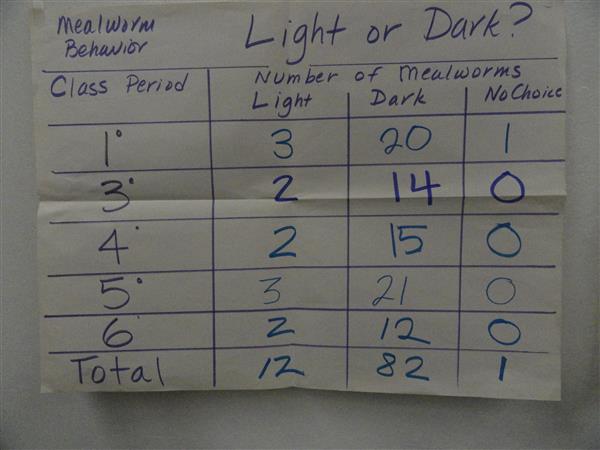 Mealworm Behavior
Light or Dark?
Class Period
Number of Mealworms
Light Dark No Choice
1° 3 20 1
3° 2 14 0
4° 2 15 0
5° 3 21 0
6° 2 12 0
Total 12 82 1